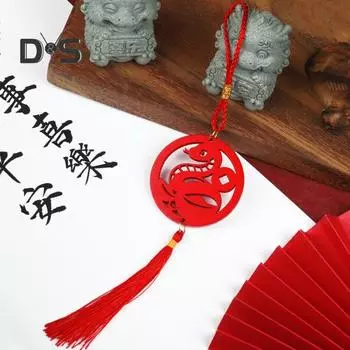 DS
事喜樂
平安